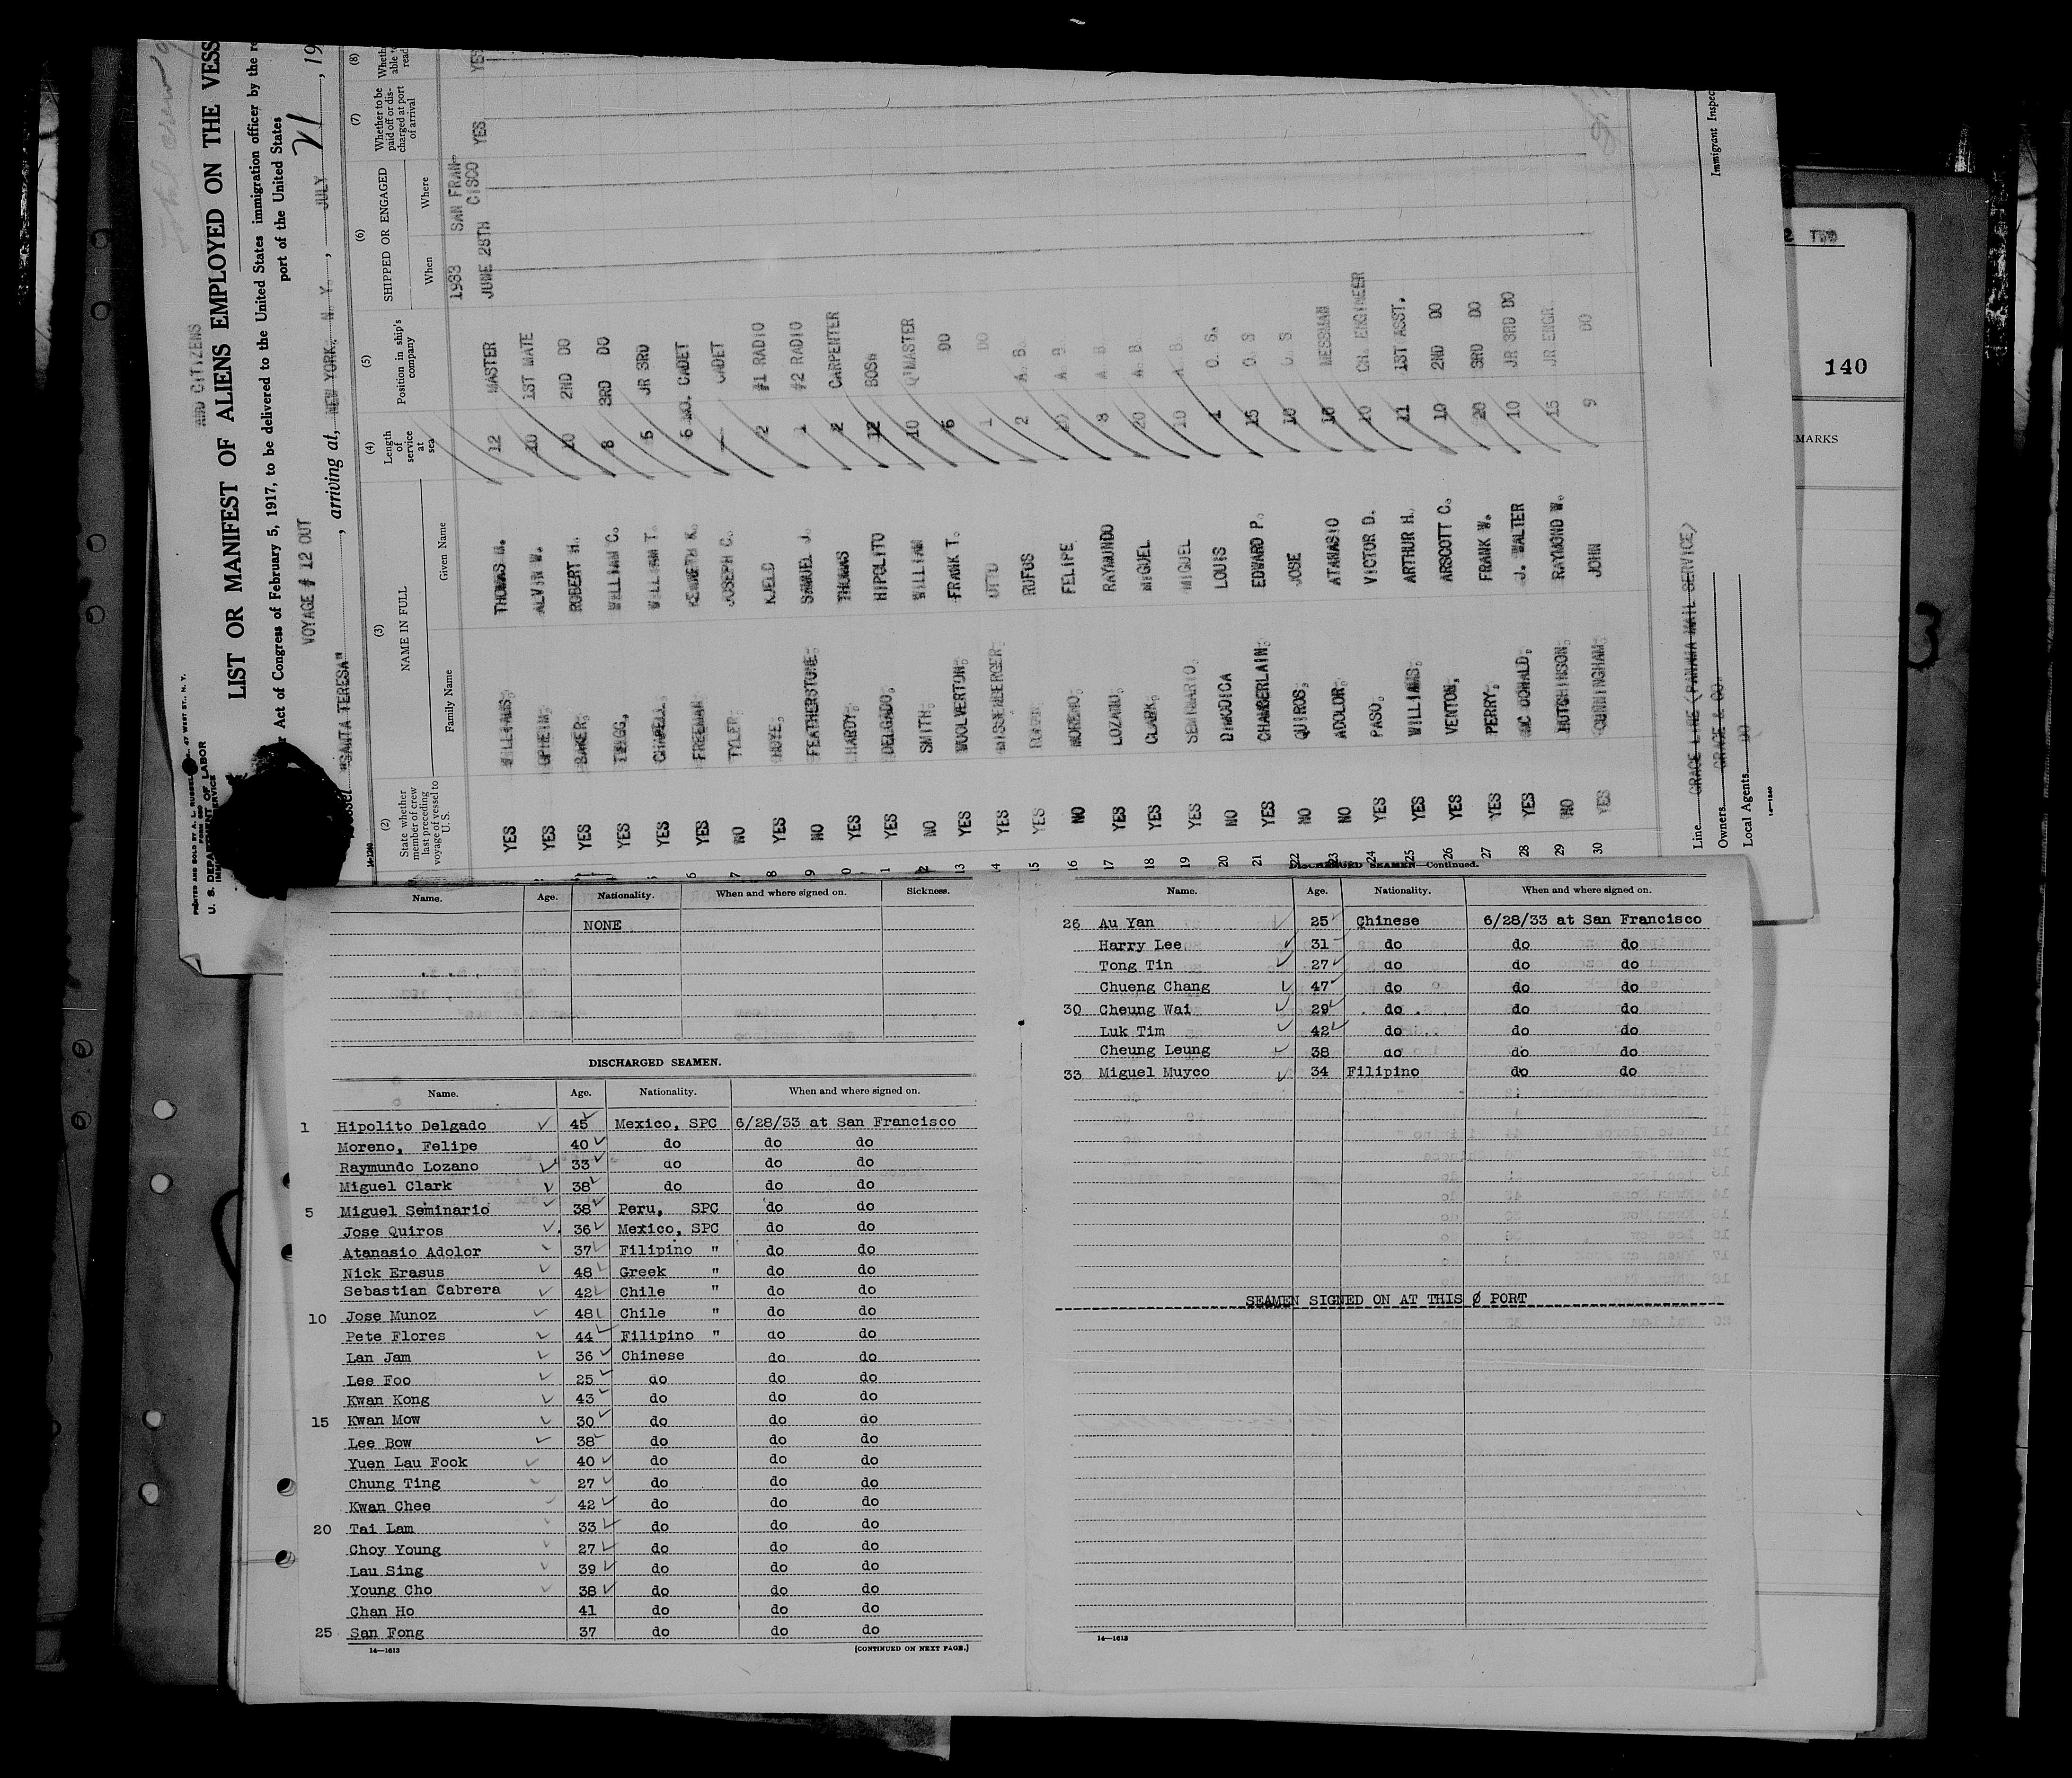 AND CITIZENS
LIST OR MANIFEST OF ALIENS EMPLOYED ON THE VESS
Act of Congress of February 5, 1917, to be delivered to the United States immigration officer by the re
port of the United States
VOYAGE # 12 OUT
"SANTA TERESA", arriving at, NEW YORK, N. Y., JULY 21, 19
PRINTED AND SOLD BY A. L. RUSSEL 47 WEST ST., N. Y.
FORM 680
U. S. DEPARTMENT OF LABOR
14-1240
(2) (3) (4) (5) (6) (7) (8)
State whether member of crew last preceding voyage of vessel to U. S.
NAME IN FULL
Family Name Given Name
Length of service at sea
Position in ship's company
SHIPPED OR ENGAGED
When Where
Whether to be paid off or discharged at port of arrival
1933 SAN FRAN-
JUNE 28TH CISCO YES YES
YES WILLIAMS, THOMAS 12 MASTER
YES UPHEIM, ALVIN W. 10 1ST MATE
YES BAKER, ROBERT H. 10 2ND DO
YES WILLIAM C. 8 3RD DO
YES CHAPELL, WILLIAM T. 5 JR 3RD
6 YES FREEMAN KENNETH K. 6 MO. CADET
7 NO TYLER, JOSEPH C. CADET
8 YES HOYE, KJELD 2 #1 RADIO
9 NO FEATHERSTONE, SAMUEL J. 1 #2 RADIO
0 YES HARDY, THOMAS 2 CARPENTER
1 YES DELGADO, HIPOLITO 12 BOSN
12 NO SMITH, WILLIAM 10 Q'MASTER
13 YES WOOLVERTON, FRANK T. 6 DO
14 YES OTTO 1 DO
15 YES RUFUS 2 A. B.
16 NO MORENO, FELIPE A. B.
17 YES LOZANO, RAYMUNDO 8 A B
18 YES CLARK, MIGUEL 20 A. B.
19 YES SEMINARIO, MIGUEL 10 A. B.
20 NO DIMODICA LOUIS 1 O. S.
21 YES CHAMBERLAIN, EDWARD P. 15 O. S
22 NO QUIROS, JOSE 10 O. S
23 NO ADOLOR, ATANASIO 18 MESSMAN
24 YES PASO, VICTOR D. 10 CH. ENGINEER
25 YES WILLIAMS, ARTHUR H. 11 1ST ASST.
26 YES VENTON, ARSCOTT C. 10 2ND DO
27 YES PERRY, FRANK W. 20 3RD DO
28 YES MC DONALD, J. WALTER 10 JR 3RD DO
29 NO HUTCHINSON, RAYMOND W. 15 JR ENGR.
30 YES CUNNINGHAM, JOHN 9 DO
Line GRACE LINE (PANAMA MAIL SERVICE)
Owners GRACE & CO.
Local Agents DO
14-1240
Immigrant Inspec
TWO
140
MARKS
3
Name. Age. Nationality. When and where signed on. Sickness.
NONE
DISCHARGED SEAMEN.
Name. Age. Nationality. When and where signed on.
1 Hipolito Delgado 45 Mexico, SPC 6/28/33 at San Francisco
Moreno, Felipe 40 do do do
Raymundo Lozano 33 do do do
Miguel Clark 38 do do do
5 Miguel Seminario 38 Peru, SPC do do
Jose Quiros 36 Mexico, SPC do do
Atanasio Adolor 37 Filipino " do do
Nick Erasus 48 Greek " do do
Sebastian Cabrera 42 Chile " do do
10 Jose Munoz 48 Chile " do do
Pete Flores 44 Filipino " do do
Lan Jam 36 Chinese do do
Lee Foo 25 do do do
Kwan Kong 43 do do do
15 Kwan Mow 30 do do do
Lee Bow 38 do do do
Yuen Lau Fook 40 do do do
Chung Ting 27 do do do
Kwan Chee 42 do do do
20 Tai Lam 33 do do do
Choy Young 27 do do do
Lau Sing 39 do do do
Young Cho 38 do do do
Chan Ho 41 do do do
25 San Fong 37 do do do
14—1613 [CONTINUED ON NEXT PAGE.]
DISCHARGED SEAMEN—Continued.
Name. Age. Nationality. When and where signed on.
26 Au Yan 25 Chinese 6/28/33 at San Francisco
Harry Lee 31 do do do
Tong Tin 27 do do do
Chueng Chang 47 do do do
30 Cheung Wai 29 do do do
Luk Tim 42 do do do
Cheung Leung 38 do do do
33 Miguel Muyco 34 Filipino do do
SEAMEN SIGNED ON AT THIS Ø PORT
14—1613